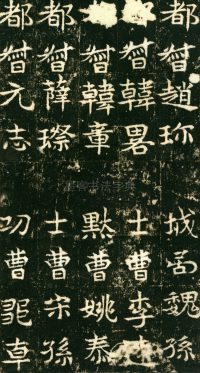 都督趙珎 城局魏孫
督韓畧 士曹李
督韓董 默曹姚泰
都督薛璨 士曹宋孫
都督元志 功曹
书法字典